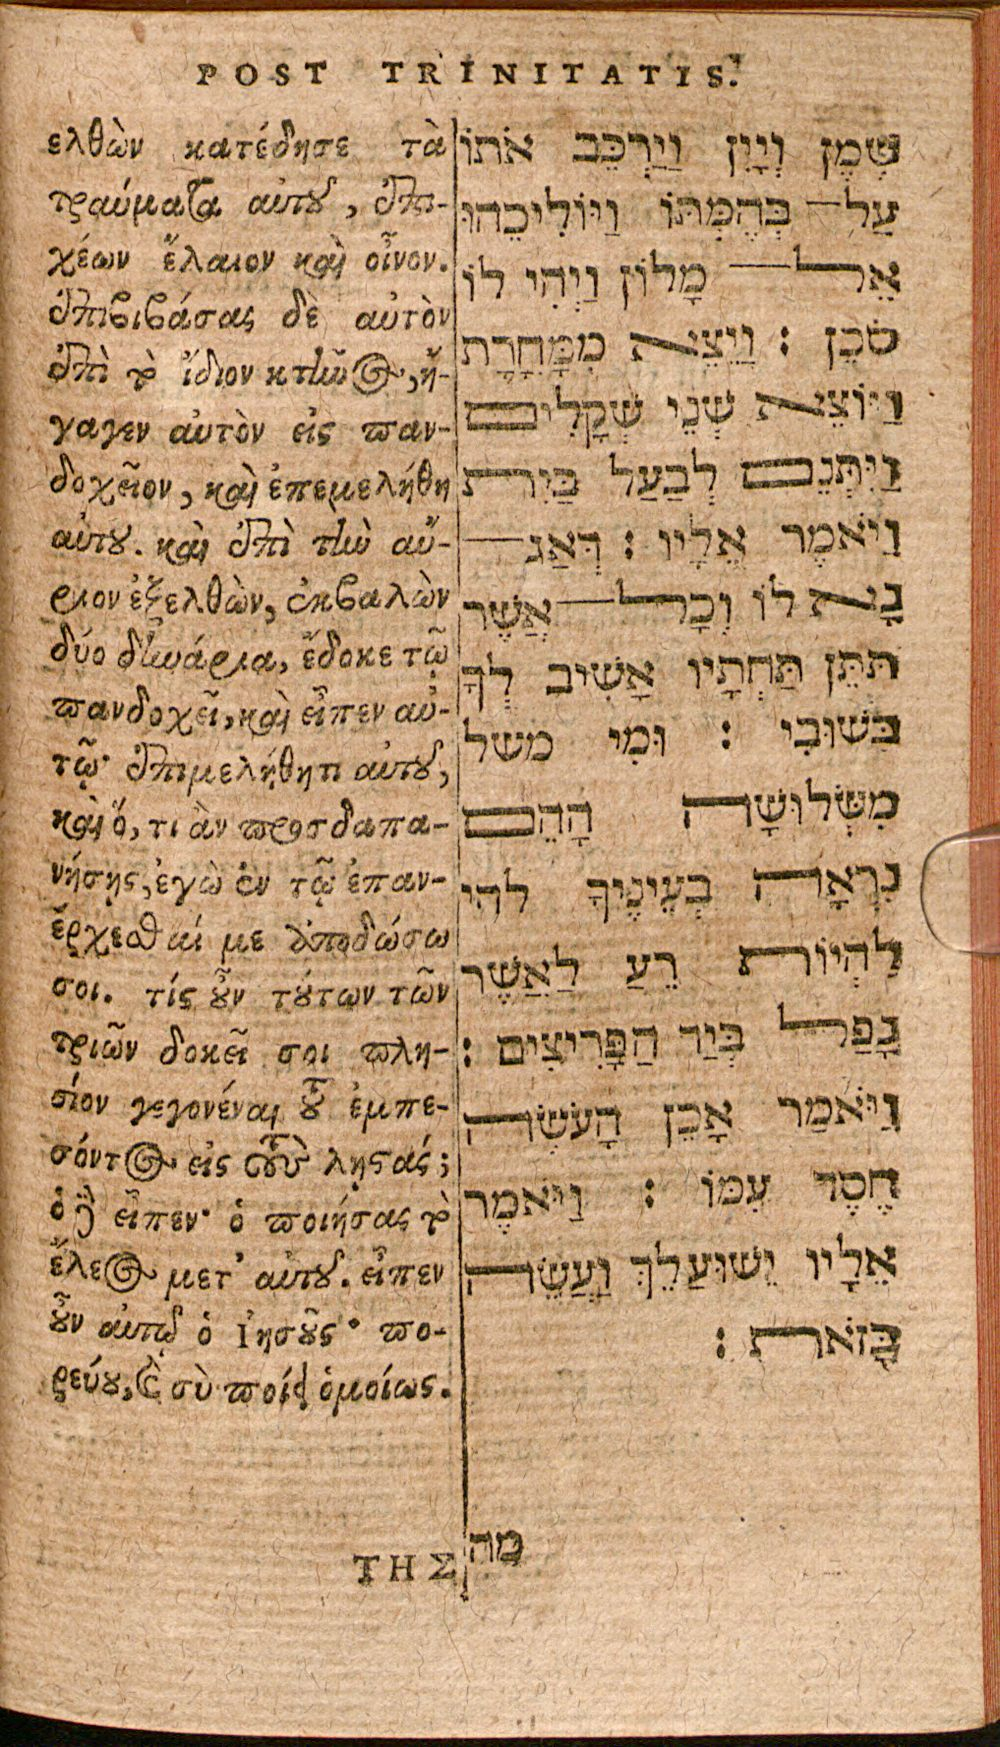 POST TRINITATIS.
ελθὼν κατέδησε τὰ
τραύματα αὐτοῦ, ἐπι-
χέων ἔλαιον καὶ οἶνον.
ἐπιβιβάσας δὲ αὐτὸν
ἐπὶ τὸ ἴδιον κτῆνος, ἤ-
γαγεν αὐτὸν εἰς παν-
δοχεῖον, καὶ ἐπεμελήθη
αὐτοῦ. καὶ ἐπὶ τὴν αὔ-
ριον ἐξελθὼν, ἐκβαλὼν
δύο δηνάρια, ἔδοκε τῷ
πανδοχεῖ, καὶ εἶπεν αὐ-
τῷ· ἐπιμελήθητι αὐτοῦ,
καὶ ὅ, τι ἂν προσδαπα-
νήσῃς, ἐγὼ ἐν τῷ ἐπαν-
έρχεσθαί με ἀποδώσω
σοι. τίς οὖν τούτων τῶν
τριῶν δοκεῖ σοι πλη-
σίον γεγονέναι τοῦ ἐμπε-
σόντος εἰς τοὺς λῃστάς;
ὁ δὲ εἶπεν· ὁ ποιήσας τὸ
ἔλεος μετ' αὐτοῦ. εἶπεν
οὖν αὐτῷ ὁ Ἰησοῦς· πο-
ρεύου, καὶ σὺ ποίει ὁμοίως.
ΤΗΣ
שֶׁמֶן וְיָיִן וַיַּרְכֵּב אֹתוֹ
עַל בְּהֶמְתּוֹ וַיּוֹלִיכֵהוּ
אֶל מָלוֹן וַיְהִי לוֹ
סֹכֵן : וַיֵּצֵא מִמָּחֳרָת
וַיּוֹצֵא שְׁנֵי שְׁקָלִים
וַיִּתְּנֵם לְבַעַל בַּיִת
וַיֹּאמֶר אֵלָיו : דְּאַג
נָא לוֹ וְכָל אֲשֶׁר
תִּתֵּן תַּחְתָּיו אָשִׁיב לְךָ
בְּשׁוּבִי : וּמִי משל
מִשְּׁלוּשָׁה הָהֵם
נִרְאָה בְּעֵינֶיךָ להי
לִהְיוֹת רֵעַ לַאֲשֶׁר
נָפַל בְּיַד הַפָּרִיצִים :
וַיֹּאמַר אָכֵן הָעֹשֶׂה
חֶסֶד עִמּוֹ : וַיֹּאמֶר
אֵלָיו יֵשׁוּעַ לֵךְ וַעֲשֵׂה
כָּזֹאת :
מה